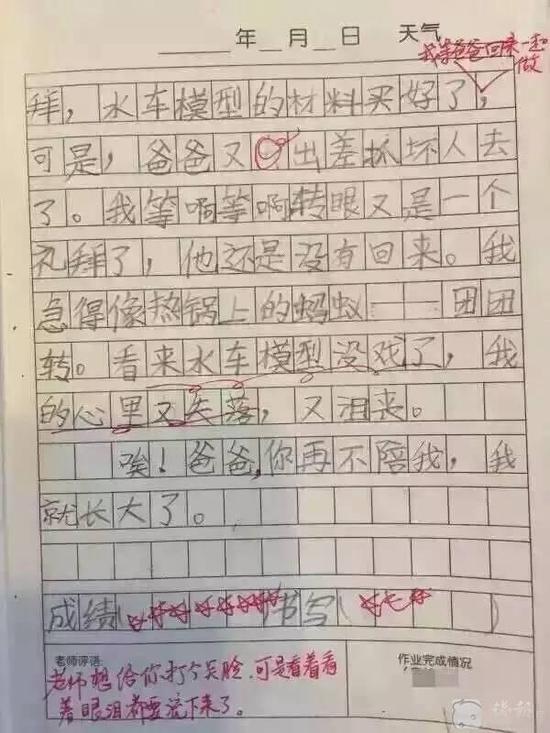 年 月 日 天气
我等爸爸回来一起
做
拜，水车模型的材料买好了，
可是，爸爸又出差抓坏人去
了。我等啊等啊转眼又是一个
礼拜了，他还是没有回来。我
急得像热锅上的蚂蚁——团团
转。看来水车模型没戏了，我
的心里又失落，又沮丧。
唉！爸爸，你再不陪我，我
就长大了。
成绩( 好好好好好好好好 书写( 好七好 )
老师评语：
老师想给你打个笑脸，可是看着看
着眼泪都要流下来了。
作业完成情况